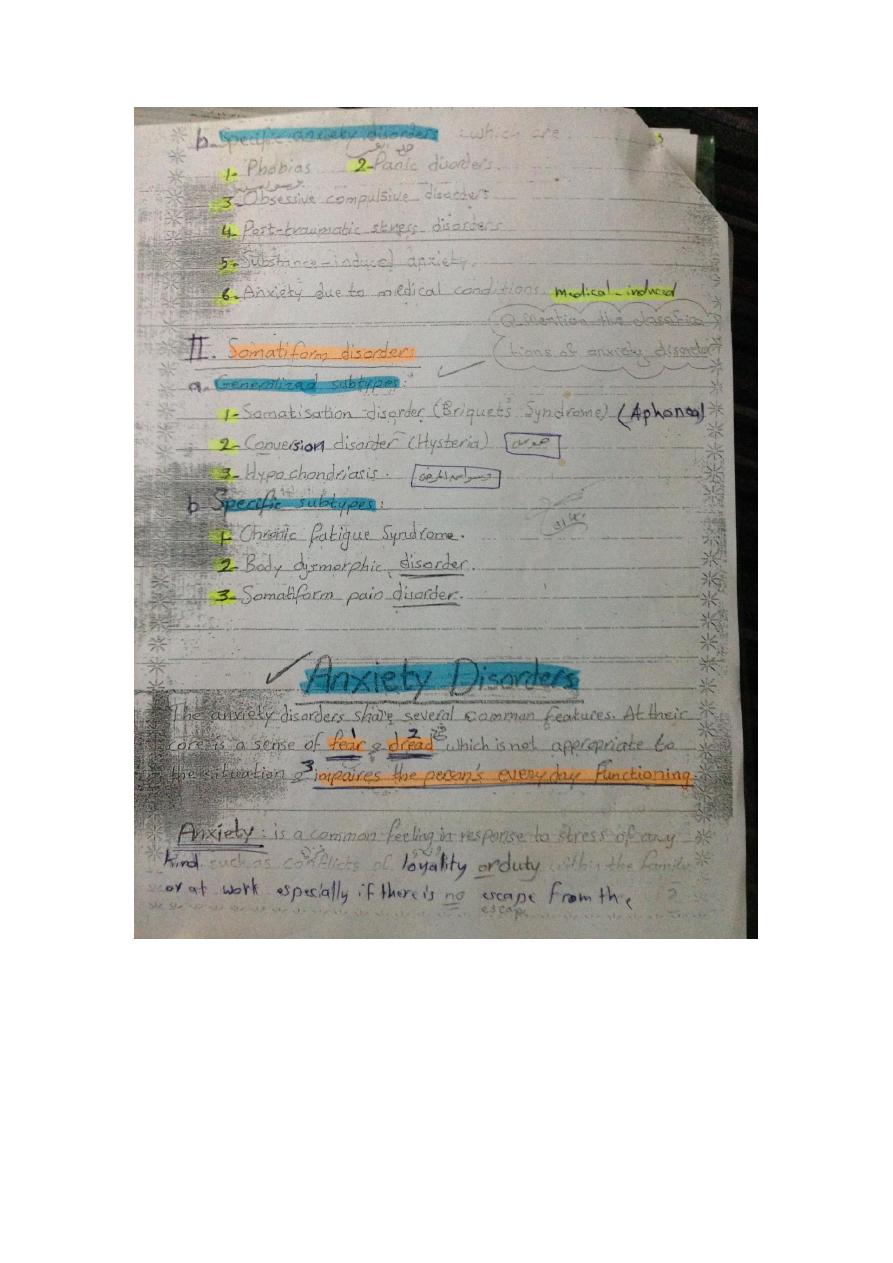 b. Specific anxiety disorders which are
1- Phobias 2- Panic disorders.
3- Obsessive compulsive disorders
4- Post-traumatic stress disorders
5- Substance-induced anxiety.
6- Anxiety due to medical conditions medical-induced
Q. Mention the classifica
tions of anxiety disorder
II. Somatiform disorders
a. Generalized subtypes:
1- Somatisation disorder (Briquet's Syndrome) (Aphonea)
2- Conversion disorder (Hysteria)
3- Hypochondriasis.
b. Specific subtypes:
1- Chronic fatigue Syndrome.
2- Body dysmorphic disorder.
3- Somatiform pain disorder.
Anxiety Disorders
The anxiety disorders share several common features. At their
core is a sense of fear 1 & dread 2 which is not appropriate to
the situation & 3 impaires the person's everyday functioning
Anxiety: is a common feeling in response to stress of any
kind such as conflicts of loyality or duty within the family
or at work especially if there is no escape from the
escape
2